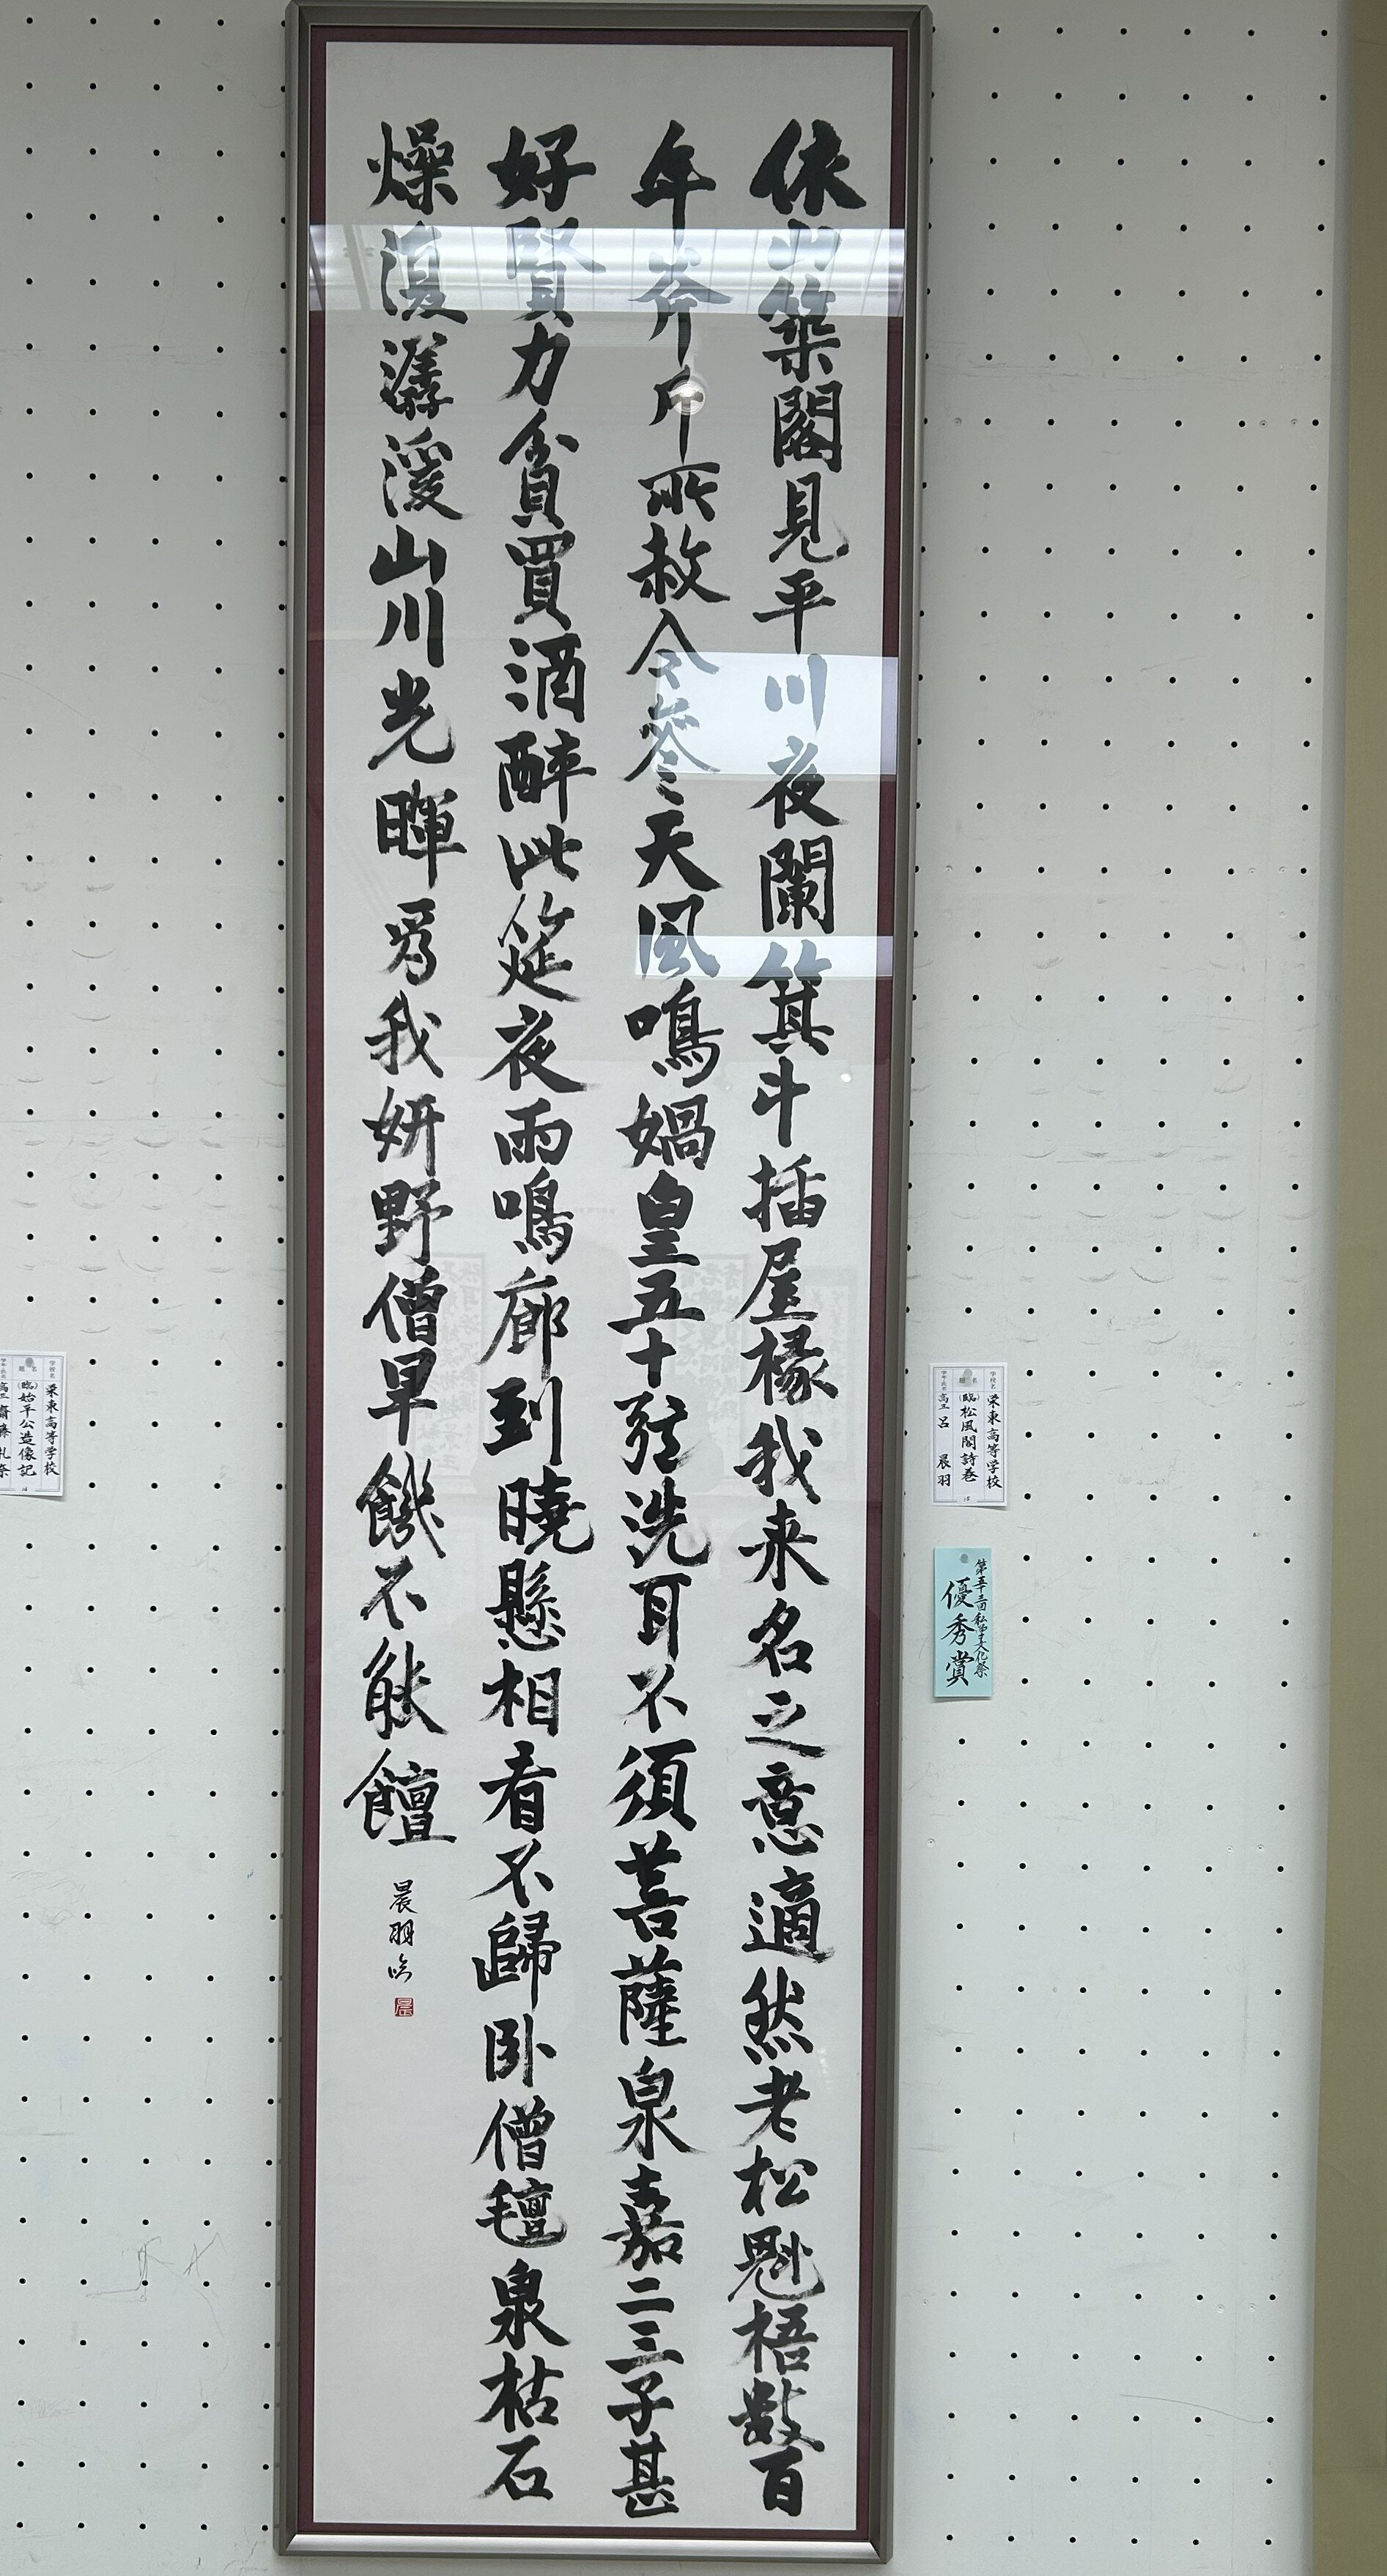 依山築閣見平川夜闌箕斗插屋椽我来名之意適然老松魁梧數百
年斧斤所赦今參天風鳴媧皇五十弦洗耳不須菩薩泉嘉二三子甚
好賢力貧買酒醉此筵夜雨鳴廊到曉懸相看不歸臥僧氈泉枯石
燥復潺湲山川光暉爲我妍野僧早饑不能饘
晨羽臨
学校名 栄東高等学校
題名 (臨)松風閣詩巻
学年・氏名 高二 呂 晨羽
18
第五十三回私学文化祭
優秀賞
学校名 栄東高等学校
題名 (臨)始平公造像記